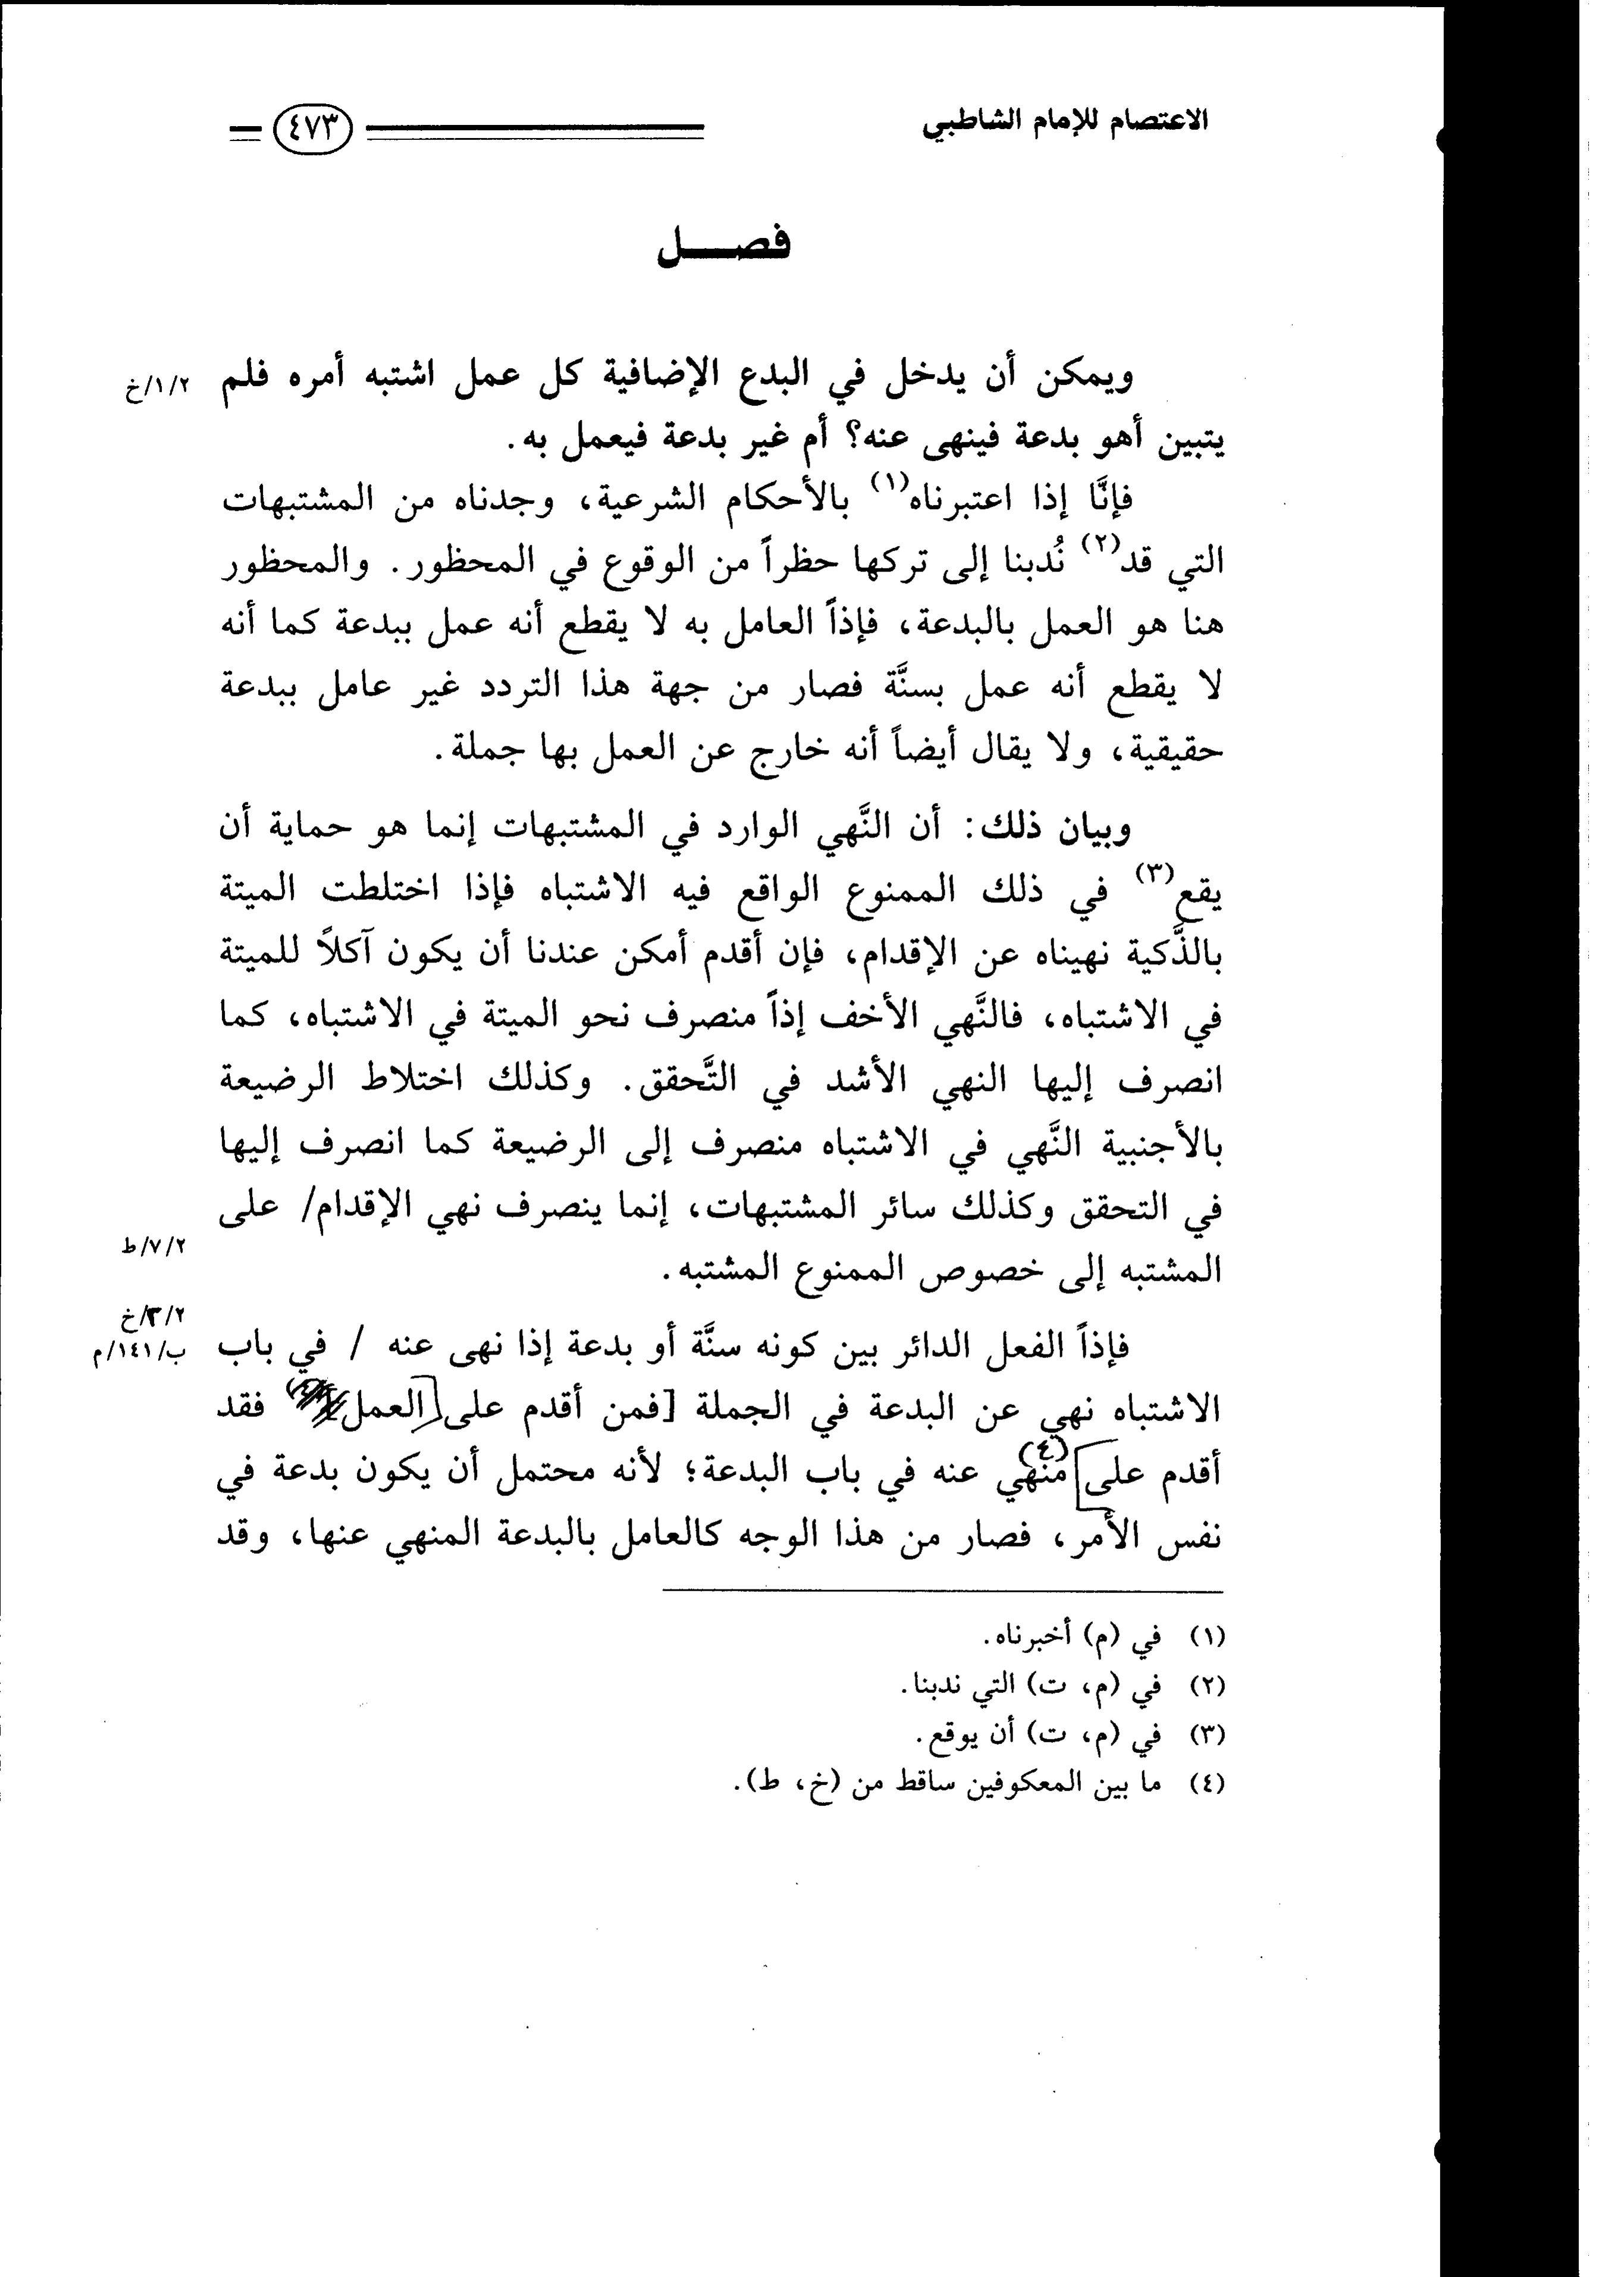 الاعتصام للإمام الشاطبي
٤٧٣
فصـــــل
ويمكن أن يدخل في البدع الإضافية كل عمل اشتبه أمره فلم
٢/١/خ
يتبين أهو بدعة فينهى عنه؟ أم غير بدعة فيعمل به.
فإنَّا إذا اعتبرناه(١) بالأحكام الشرعية، وجدناه من المشتبهات
التي قد(٢) نُدبنا إلى تركها حظراً من الوقوع في المحظور. والمحظور
هنا هو العمل بالبدعة، فإذاً العامل به لا يقطع أنه عمل ببدعة كما أنه
لا يقطع أنه عمل بسنَّة فصار من جهة هذا التردد غير عامل ببدعة
حقيقية، ولا يقال أيضاً أنه خارج عن العمل بها جملة.
وبيان ذلك: أن النَّهي الوارد في المشتبهات إنما هو حماية أن
يقع(٣) في ذلك الممنوع الواقع فيه الاشتباه فإذا اختلطت الميتة
بالذَّكية نهيناه عن الإقدام، فإن أقدم أمكن عندنا أن يكون آكلاً للميتة
في الاشتباه، فالنَّهي الأخف إذاً منصرف نحو الميتة في الاشتباه، كما
انصرف إليها النهي الأشد في التَّحقق. وكذلك اختلاط الرضيعة
بالأجنبية النَّهي في الاشتباه منصرف إلى الرضيعة كما انصرف إليها
في التحقق وكذلك سائر المشتبهات، إنما ينصرف نهي الإقدام/ على
٢/٧/ط
المشتبه إلى خصوص الممنوع المشتبه.
٢/٣/خ
فإذاً الفعل الدائر بين كونه سنَّة أو بدعة إذا نهى عنه / في باب
ب/١٤١/م
الاشتباه نهي عن البدعة في الجملة [فمن أقدم على [العمل فقد
أقدم على] منهي(٤) عنه في باب البدعة؛ لأنه محتمل أن يكون بدعة في
نفس الأمر، فصار من هذا الوجه كالعامل بالبدعة المنهي عنها، وقد
(١) في (م) أخبرناه.
(٢) في (م، ت) التي ندبنا.
(٣) في (م، ت) أن يوقع.
(٤) ما بين المعكوفين ساقط من (خ، ط).